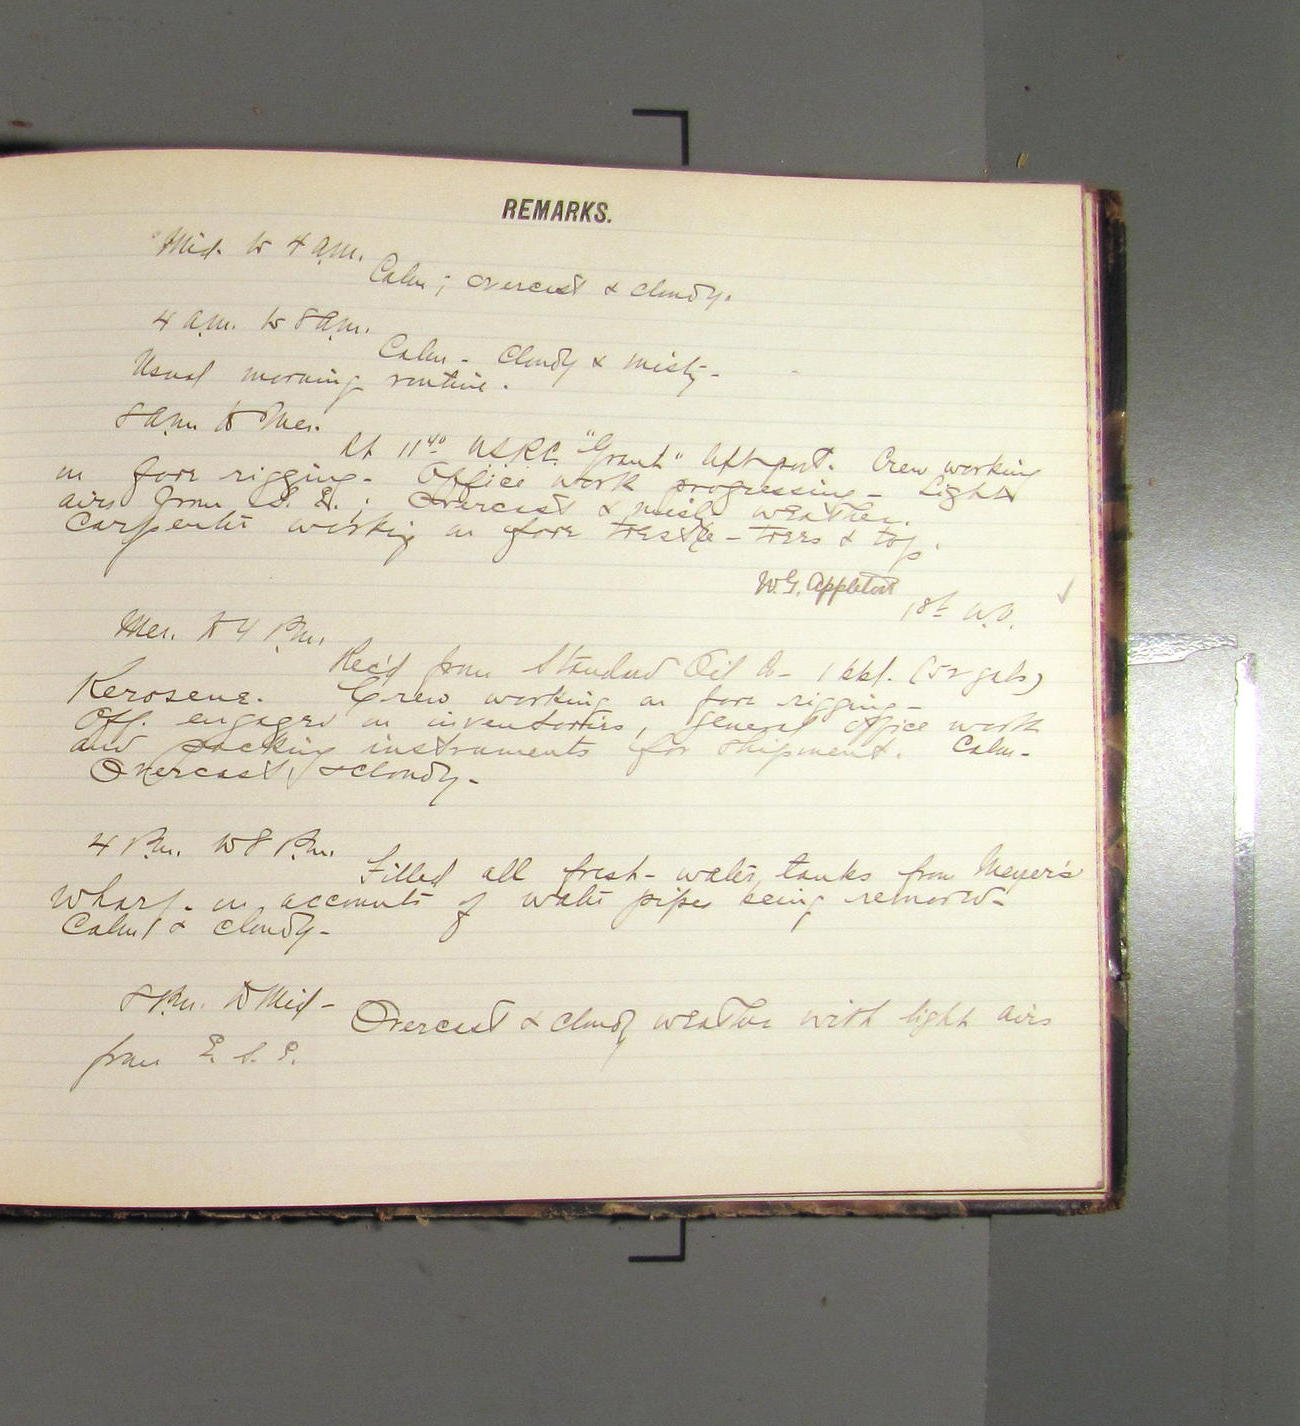 REMARKS.
Mid. to 4 a.m.
Calm; overcast & cloudy.
4 a.m. to 8 a.m.
Calm - Cloudy & misty -
Usual morning routine.
8 a.m. to Mer.
At 11 40 U.S.R.C. "Grant" left port. Crew working
on fore rigging - Office work progressing - Light
airs from S. E.; Overcast & misty weather.
Carpenter working on fore trestle-trees & top.
W.G. Appleton
1st W.O.
Mer. to 4 P.m.
Rec'd from Standard Oil Co - 1 bbl. (52 gals)
Kerosene. Crew working on fore rigging -
Off. engaged on inventories, general office work
and packing instruments for shipment. Calm -
Overcast, & cloudy -
4 P.m. to 8 P.m.
Filled all fresh-water tanks from Meyer's
Wharf - on accounts of water pipes being removed -
Calm & cloudy -
8 P.m. to Mid -
Overcast & cloudy weather with light airs
from E. S. E.